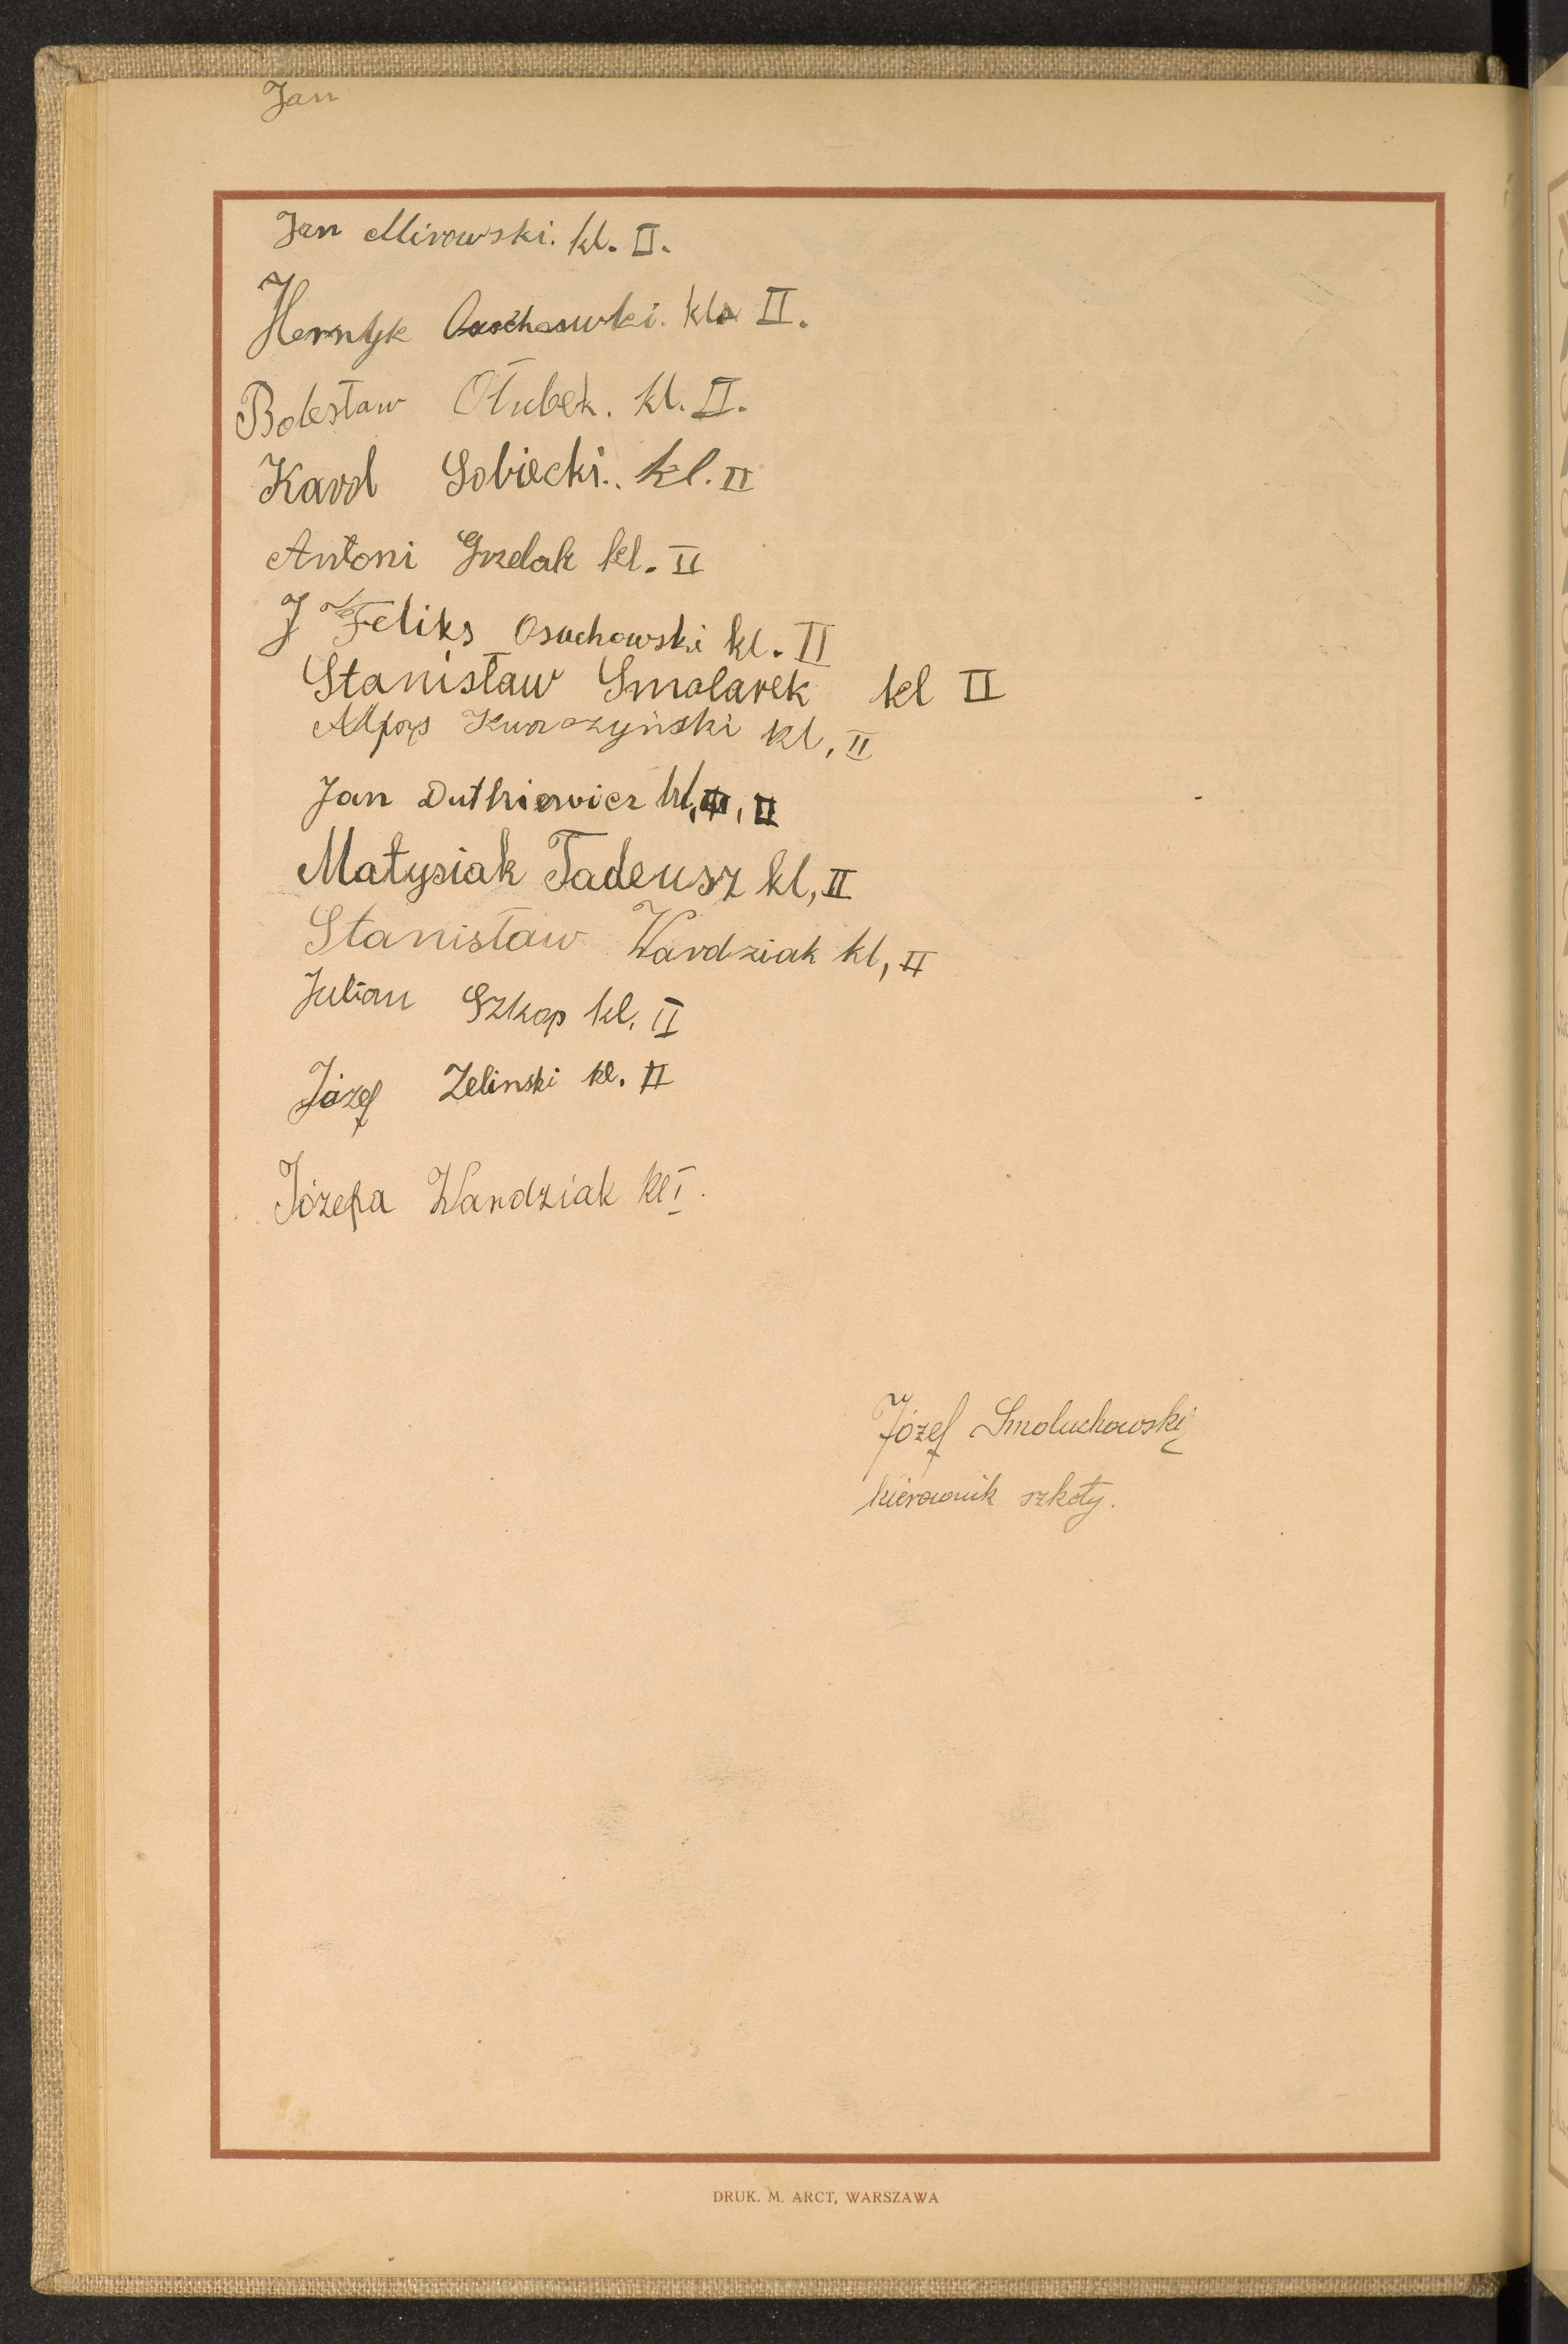 Jan
Jan Mirowski. kl. II.
Herntyk kla II.
Bolesław Otubek. kl. II.
Karol Sobiecki.. kl. II
Antoni Grzelak kl. II
J Feliks Osuchowski kl. II
Stanisław Smolarek kl II
kl, II
Jan Dutkiewicz kl, II
Matysiak Tadeusz kl, II
Stanisław Wardziak kl, II
Julian Szkop kl. II
Józef Zelinski kl. II
Józefa Wardziak kl I.
Józef Smoluchowski
kierownik szkoły.
DRUK. M. ARCT, WARSZAWA